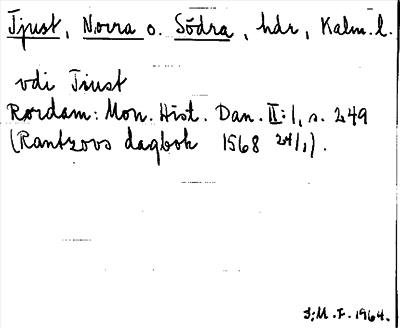 Tjust, Norra o. Södra, hdr, Kalm. l.
vdi Tiust
Rørdam: Mon. Hist. Dan. II:1, s. 249
(Rantzovs dagbok 1568 24/1).
S:M.F. 1964.